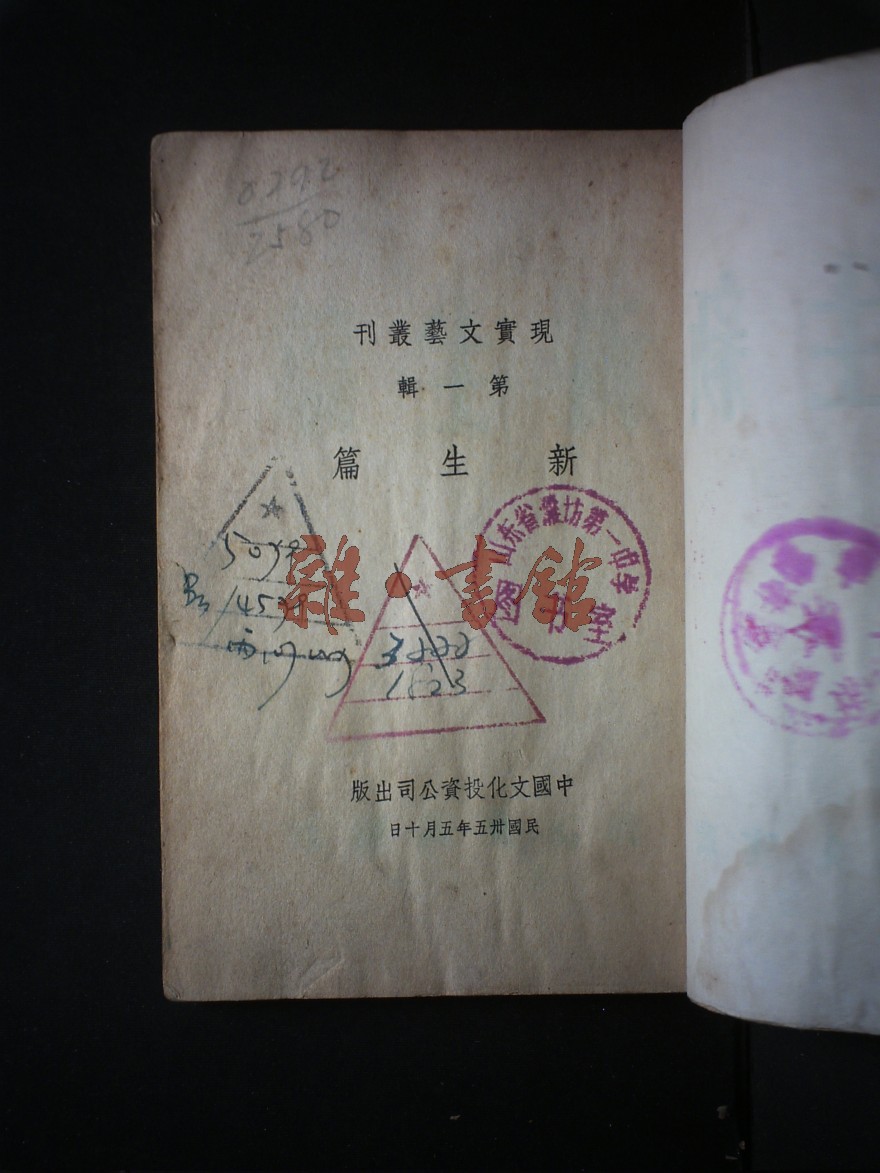 8292
2580
現實文藝叢刊
第一輯
新生篇
山东省濰坊第一中学
图书室
雜·書館
3222
1523
中國文化投資公司出版
民國卅五年五月十日